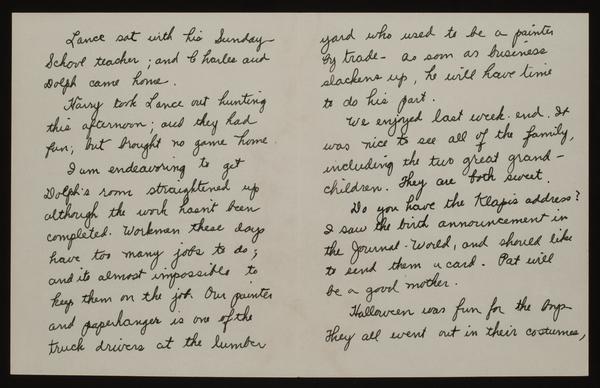 Lance sat with his Sunday
School teacher; and Charles and
Dolph came home.
Harry took Lance out hunting
this afternoon; and they had
fun, but brought no game home.
I am endeavoring to get
Dolph's room straightened up
although the work hasn't been
completed. Workmen these days
have too many jobs to do;
and its almost impossible to
keep them on the job. Our painter
and paperhanger is one of the
truck drivers at the lumber
yard who used to be a painter
by trade - as soon as business
slackens up, he will have time
to do his part.
We enjoyed last week-end. It
was nice to see all of the family,
including the two great grand-
children. They are both sweet.
Do you have the Klapis address?
I saw the birth announcement in
the Journal-World, and should like
to send them a card. Pat will
be a good mother.
Halloween was fun for the boys
They all went out in their costumes,